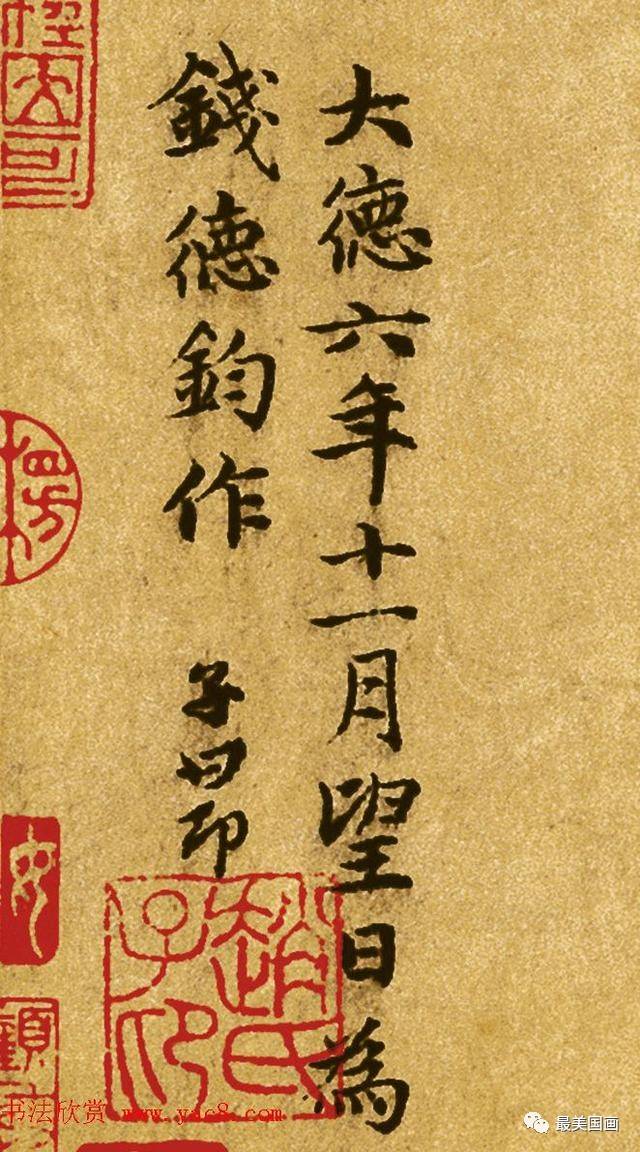 大德六年十一月望日為
錢德鈞作 子昂
趙氏子昂
书法欣赏 www.yac8.com
最美国画